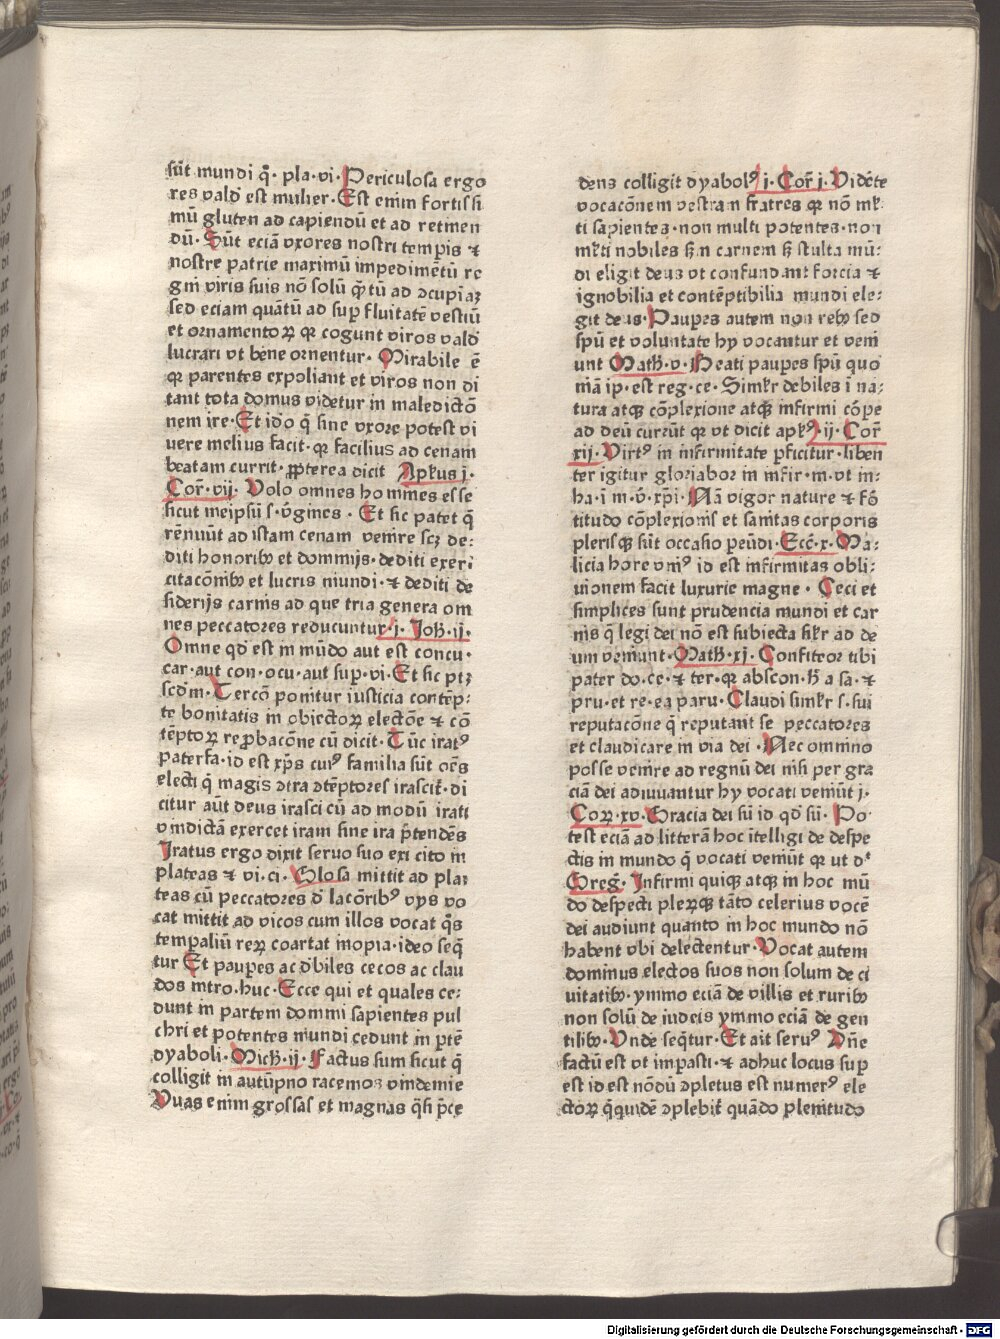 sūt mundi q̄· pla·vi· Periculosa ergo
res valð est mulier· Est enim fortissi
mū gluten ad capiendū et ad retinen
dū· Sūt eciā vxores nostri tempis ⁊
nostre patrie maximū impedimētū re
gni viris suis nō solū q̄tū ad ɔcupiaꝫ
sed eciam quātū ad supfluitatē vestiū
et ornamentoꝝ qꝛ cogunt viros valð
lucrari vt bene ornentur· Mirabile ē
qꝛ parentes expoliant et viros non di
tant tota domus videtur in maledictō
nem ire· Et ido q̄ sine vxore potest vi
uere melius facit· qꝛ facilius ad cenam
beatam currit· ꝓpterea dicit Apłus j·
Coꝝ· vij· Volo omnes homines esse
sicut meipsū s· v̄gines· Et sic patet q̄
rēnuūt ad istam cenam venire scꝫ de⸗
diti honoribꝰ et dominijs· dediti exer⸗
citacōnibꝰ et lucris mundi· ⁊ dediti de
siderijs carnis ad que tria genera om
nes peccatores reducuntur· j· Joh· ij·
Omne qð est in mūdo aut est concu·
car· aut con· ocu· aut sup· vi· Et sic ptꝫ
scdm· Tercō ponitur iusticia contēp⸗
te bonitatis in obiectoꝝ electōe ⁊ cō
tēptoꝝ repbacōne cū dicit· Tūc iratꝰ
paterfa· id est xp̄s cuiꝰ familia sūt oēs
electi q̄ magis ɔtra ɔtēptores irascit̄· di
citur aūt deus irasci cū ad modū irati
vindictā exercet iram sine ira p̄tendēs
Iratus ergo dixit seruo suo exi cito in
plateas ⁊ vi· ci· Glosa mittit ad pla⸗
teas cū peccatores ð lacōribꝰ vijs vo
cat mittit ad vicos cum illos vocat q̄s
tempaliū reꝝ coartat inopia· ideo seq̄
tur Et paupes ac ðbiles cecos ac clau
dos intro· huc· Ecce qui et quales ce⸗
dunt in partem domini sapientes pul
chri et potentes mundi cedunt in ptē
dyaboli· Mich· ij· Factus sum sicut q̄
colligit in autūpno racemos vindemie
Vuas enim grossas et magnas q̄si p̄ce
dens colligit dyabolꝰ j· Coꝝ j· Vidēte
vocacōnem vestram fratres qꝛ nō ml̄⸗
ti sapientes· non multi potentes· non
ml̄ti nobiles ẜm carnem ſꝫ stulta mū⸗
di eligit deus vt confundant forcia ⁊
ignobilia et contēptibilia mundi ele⸗
git deus· Paupes autem non rebꝰ sed
spū et voluntate hy vocantur et veni
unt Math· v· Beati paupes spū quo
niā ip· est reg· ce· Simlr̄ debiles ī na⸗
tura atqꝫ cōplexione atqꝫ infirmi cōpe
ad deū currūt qꝛ vt dicit apłꝰ· ij· Coꝝ
xij· Virtꝰ in infirmitate pficitur· liben
ter igitur gloriabor in infir· m· vt in⸗
ha· ī m· v̄· xp̄i· Nā vigor nature ⁊ fō
titudo cōplexionis et sanitas corporis
plerisqꝫ sūt occasio peūdi· Ecc̄· x· Ma⸗
licia hore vniꝰ id est infirmitas obli⸗
uionem facit luxurie magne· Ceci et
simplices sunt prudencia mundi et car
nis q̄ legi dei nō est subiecta silr̄ ad de
um veniunt· Math· xj· Confiteor tibi
pater do· ce· ⁊ ter· qꝛ abscon· h̄ a sa· ⁊
pru· et re· ea paru· Claudi simlr̄ s· sui
reputacōne q̄ reputant se peccatores
et claudicare in via dei· Nec omnino
posse venire ad regnū dei nisi per gra
ciā dei adiuuantur hy vocati veniūt j·
Coꝝ· xv· Gracia dei sū id qð sū· Po⸗
test eciā ad litterā hoc ītelligi de despe
ctis in mundo q̄ vocati veniūt qꝛ ut dᵗ
Greḡ· Infirmi quiqꝫ atqꝫ in hoc mū
do despecti pleꝝqꝫ tāto celerius vocē
dei audiunt quanto in hoc mundo nō
habent vbi delectentur· Vocat autem
dominus electos suos non solum de ci
uitatibꝰ· ymmo eciā de villis et ruribꝰ
non solū de iudeis ymmo eciā de gen
tilibꝰ· Vnde seq̄tur· Et ait seruꝰ Dn̄e
factū est vt impasti· ⁊ adhuc locus sup
est id est nōdū ɔpletus est numerꝰ ele
ctoꝝ q̄quidē ɔplebit̄ quādo plenitudo
Digitalisierung gefördert durch die Deutsche Forschungsgemeinschaft · DFG